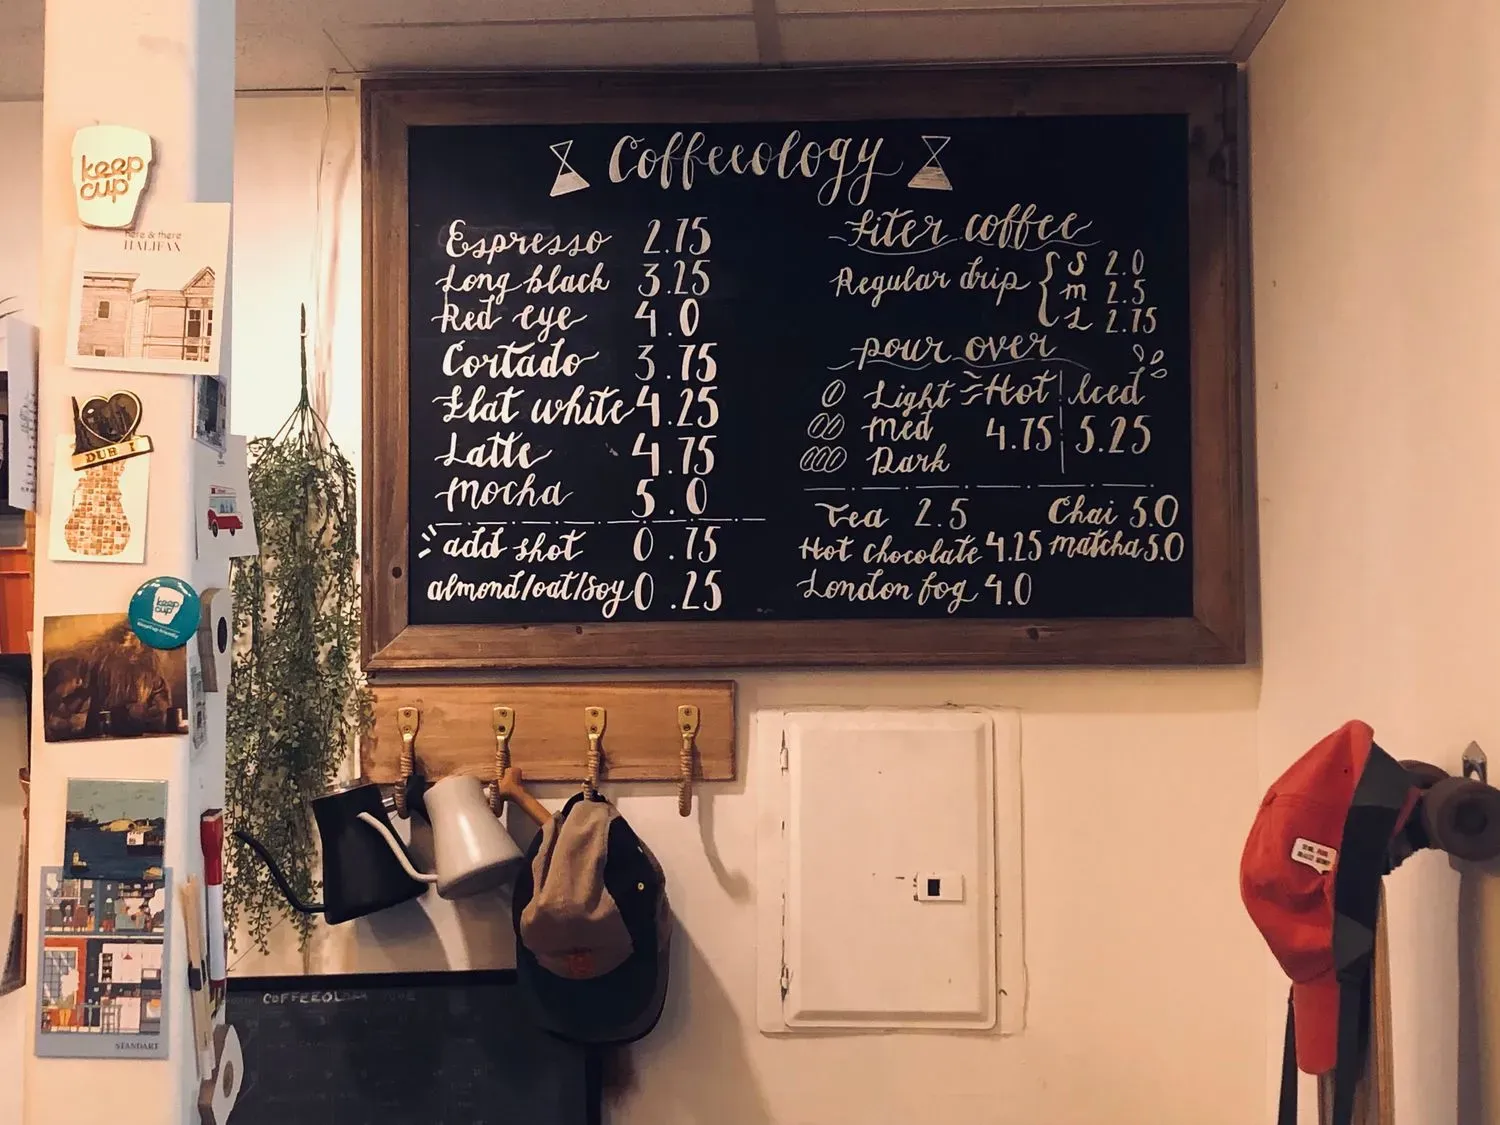 Coffeeology
Espresso 2.75
Long black 3.25
Red eye 4.0
Cortado 3.75
Flat white 4.25
Latte 4.75
Mocha 5.0
add shot 0.75
almond/oat/soy 0.25
Fiter coffee
Regular drip { S 2.0
m 2.5
L 2.75
pour over
Light Hot | Iced
Med 4.75 | 5.25
Dark
Tea 2.5 Chai 5.0
Hot chocolate 4.25 matcha 5.0
London fog 4.0
keep
cup
here & there
HALIFAX
DUB I
keep
cup
STANDART